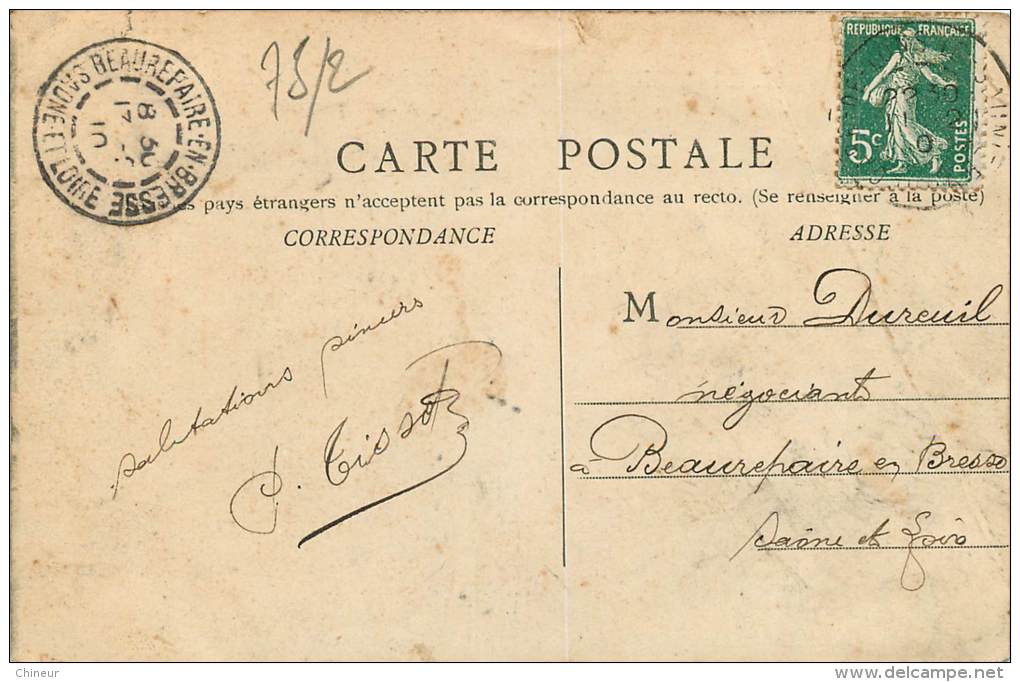 BEAUREPAIRE-EN-BRESSE
SAONE-ET-LOIRE
8 30
10
75/2
REPUBLIQUE FRANÇAISE
5c
POSTES
CARTE POSTALE
pays étrangers n'acceptent pas la correspondance au recto. (Se renseigner à la poste)
CORRESPONDANCE
ADRESSE
salutations sincères
Tissot
Monsieur Dureuil
négociant
à Beaurepaire en Bresse
Saône et Loire
Chineur
www.delcampe.net